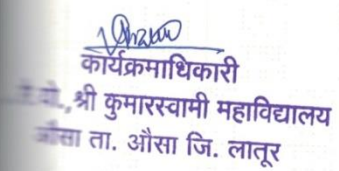 कार्यक्रमाधिकारी
श्री कुमारस्वामी महाविद्यालय
औसा ता. औसा जि. लातूर